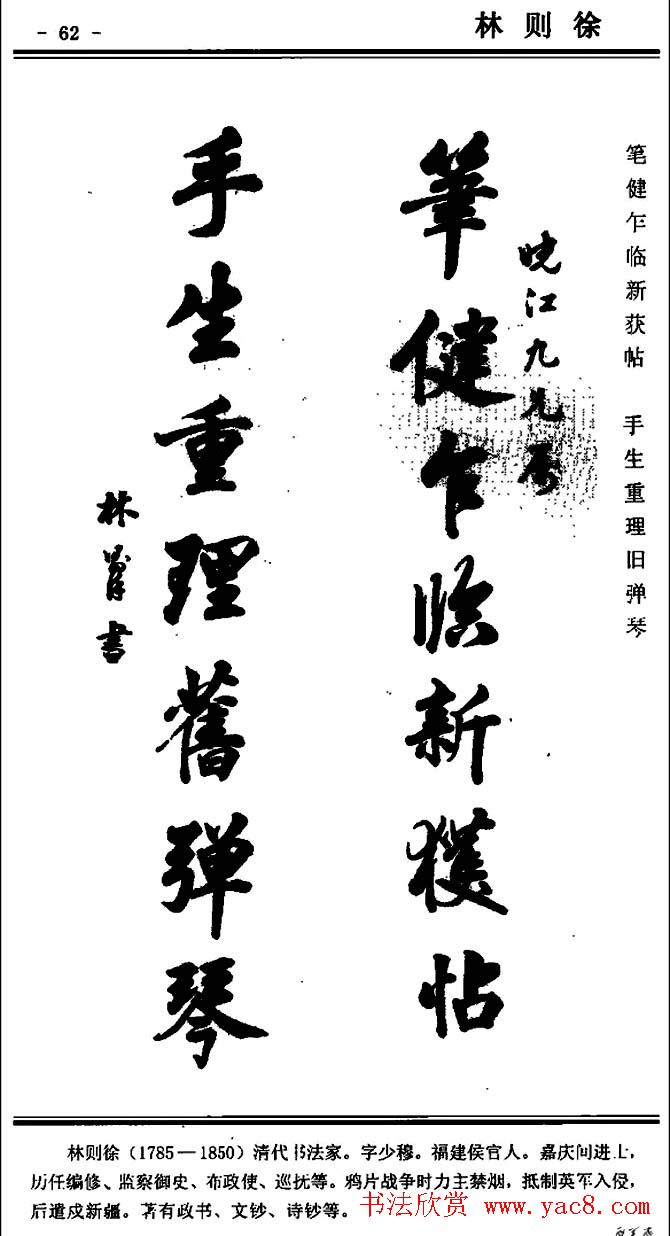 - 62 -
林则徐
笔健乍临新获帖 手生重理旧弹琴
晓江九兄属
筆健乍临新獲帖
手生重理舊弹琴
林则徐書
林则徐（1785—1850）清代书法家。字少穆。福建侯官人。嘉庆间进士，
历任编修、监察御史、布政使、巡抚等。鸦片战争时力主禁烟，抵制英军入侵，
后遣戍新疆。著有政书、文钞、诗钞等。
书法欣赏 www.yac8.com